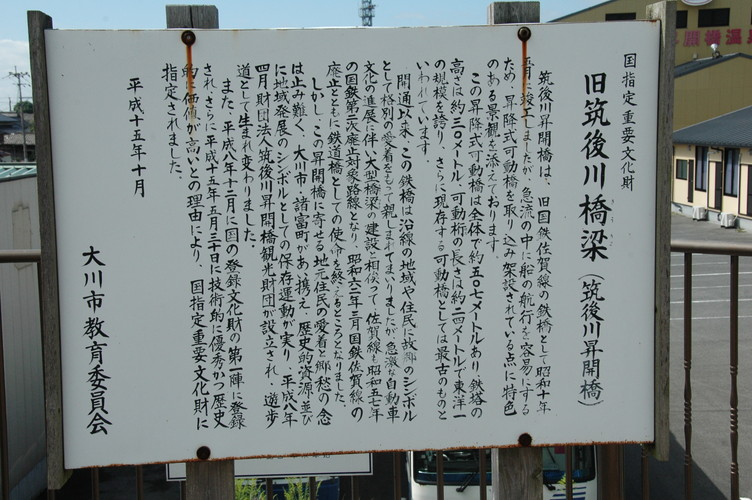 国指定重要文化財
旧筑後川橋梁(筑後川昇開橋)
筑後川昇開橋は、旧国鉄佐賀線の鉄橋として昭和十年
五月竣工しましたが、急流の中に船の航行を容易にする
ため、昇降式可動橋を取り込み架設されている点に特色
のある景観を添えております。
この昇降式可動橋は全体で約五〇七メートルあり、鉄塔の
高さは約三〇メートル、可動桁の長さは約二四メートルで東洋一
の規模を誇り、さらに現存する可動橋としては最古のものと
いわれています。
開通以来、この鉄橋は沿線の地域や住民に故郷のシンボル
として格別の愛着をもって親しまれてまいりましたが、急激な自動車
文化の進展に伴い、大型橋梁の建設と相俟って佐賀線も昭和五七年
の国鉄第二次廃止対象路線となり、昭和六二年三月国鉄佐賀線の
廃止とともに鉄道橋としての使命を終えるところとなりました。
しかし、この昇開橋に寄せる地元住民の愛着と郷愁の念
は止み難く、大川市・諸富町があい携え、歴史的資源並び
に地域発展のシンボルとしての保存運動が実り、平成八年
四月財団法人筑後川昇開橋観光財団が設立され、遊歩
道として生まれ変わりました。
また、平成八年十二月に国の登録文化財の第一陣に登録
され、さらに平成十五年五月三十日に技術的に優秀かつ歴史
的に価値が高いとの理由により、国指定重要文化財に
指定されました。
平成十五年十月
大川市教育委員会